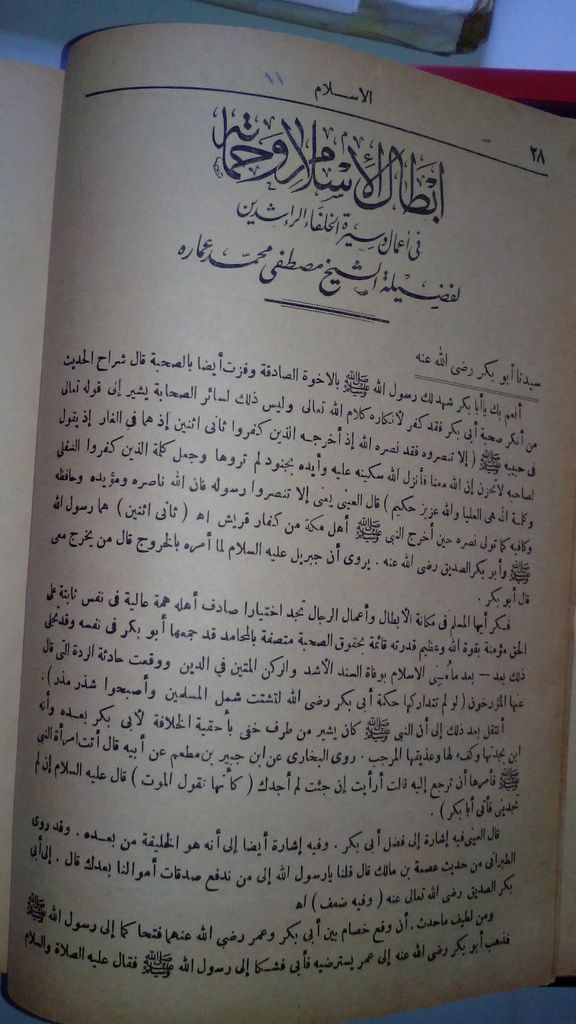 ٢٨
الاسلام
١١
أبطال الإسلام وحماته
في أعمال وسيرة الخلفاء الراشدين
لفضيلة الشيخ مصطفى محمد عماره
سيدنا أبو بكر رضى الله عنه
أنعم بك ياأبا بكر شهد لك رسول الله ﷺ بالاخوة الصادقة وفزت أيضا بالصحبة قال شراح الحديث
من أنكر صحبة أبى بكر فقد كفر لانكاره كلام الله تعالى وليس ذلك لسائر الصحابة يشير إلى قوله تعالى
فى حبيبه ﷺ ( إلا تنصروه فقد نصره الله إذ أخرجه الذين كفروا ثانى اثنين إذ هما فى الغار إذ يقول
لصاحبه لا تحزن إن الله معنا فأنزل الله سكينه عليه وأيده بجنود لم تروها وجعل كلمة الذين كفروا السفلى
وكلمة الله هى العليا والله عزيز حكيم ) قال العينى يعنى إلا تنصروا رسوله فان الله ناصره ومؤيده وحافظه
وكافيه كما تولى نصره حين أخرج النبى ﷺ أهل مكة من كفار قريش اه ( ثانى اثنين ) هما رسول الله
ﷺ وأبو بكر الصديق رضى الله عنه . يروى أن جبريل عليه السلام لما أمره بالخروج قال من يخرج معى
قال أبو بكر .
فكر أيها المسلم فى مكانة الأبطال وأعمال الرجال تجد اختيارا صادف أهله همة عالية فى نفس ثابتة على
الحق مؤمنة بقوة الله وعظيم قدرته قائمة بحقوق الصحبة متصفة بالمحامد قد جمعها أبو بكر فى نفسه وقد تجلى
ذلك بعد — بعد ما مُنى الاسلام بوفاة السند الأشد والركن المتين في الدين ووقعت حادثة الردة التى قال
عنها المؤرخون ( لو لم تتداركها حكمة أبى بكر رضى الله لتشتت شمل المسلمين وأصبحوا شذر مذر ) .
أنتقل بعد ذلك إلى أن النبى ﷺ كان يشير من طرف خفى بأحقية الخلافة لأبى بكر بعده وأنه
ابن بجدتها وكفء لها وعذيقها المرجب . روى البخارى عن ابن جبير بن مطعم عن أبيه قال أتت امرأة النبى
ﷺ فأمرها أن ترجع إليه قالت أرأيت إن جئت لم أجدك ( كأنها تقول الموت ) قال عليه السلام إن لم
تجدينى فأتى أبا بكر ) .
قال العينى فيه إشارة إلى فضل أبى بكر . وفيه إشارة أيضا إلى أنه هو الخليفة من بعده . وقد روى
الطبرانى من حديث عصمة بن مالك قال قلنا يارسول الله إلى من ندفع صدقات أموالنا بعدك قال . إلى أبى
بكر الصديق رضى الله تعالى عنه ( وفيه ضعف ) اه
ومن لطيف ماحدث . أن وقع خصام بين أبى بكر وعمر رضى الله عنهما فتحاكما إلى رسول الله ﷺ
فذهب أبو بكر رضى الله عنه إلى عمر يسترضيه فأبى فشكا إلى رسول الله ﷺ فقال عليه الصلاة والسلام